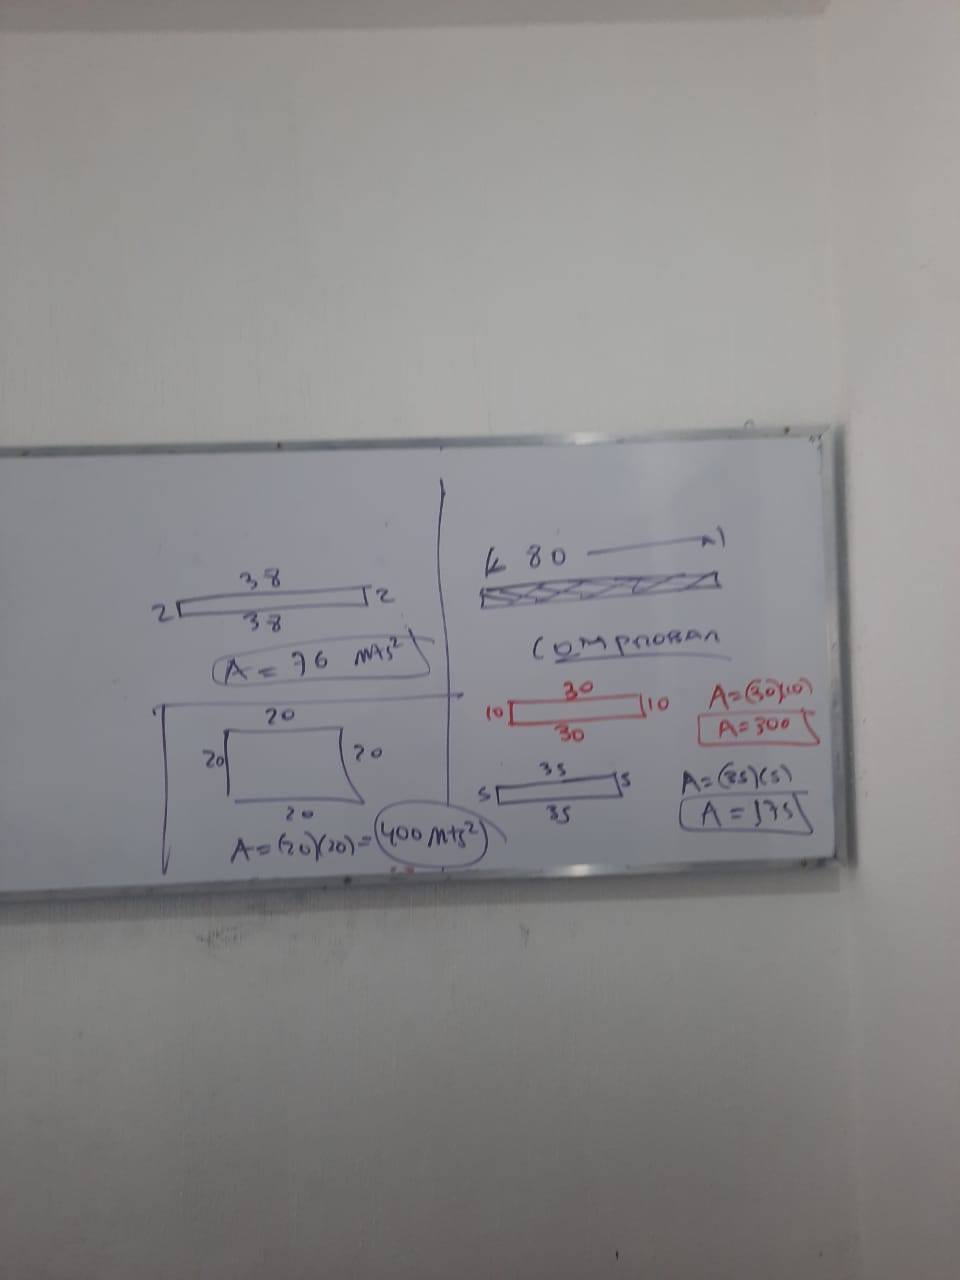 38
2 2
38
A = 76 mts²
20
20 20
20
A = (20)(20) = 400 Mts²
80
COMPROBAR
30
10 10
30
A = (30)(10)
A = 300
35
5 5
35
A = (35)(5)
A = 175